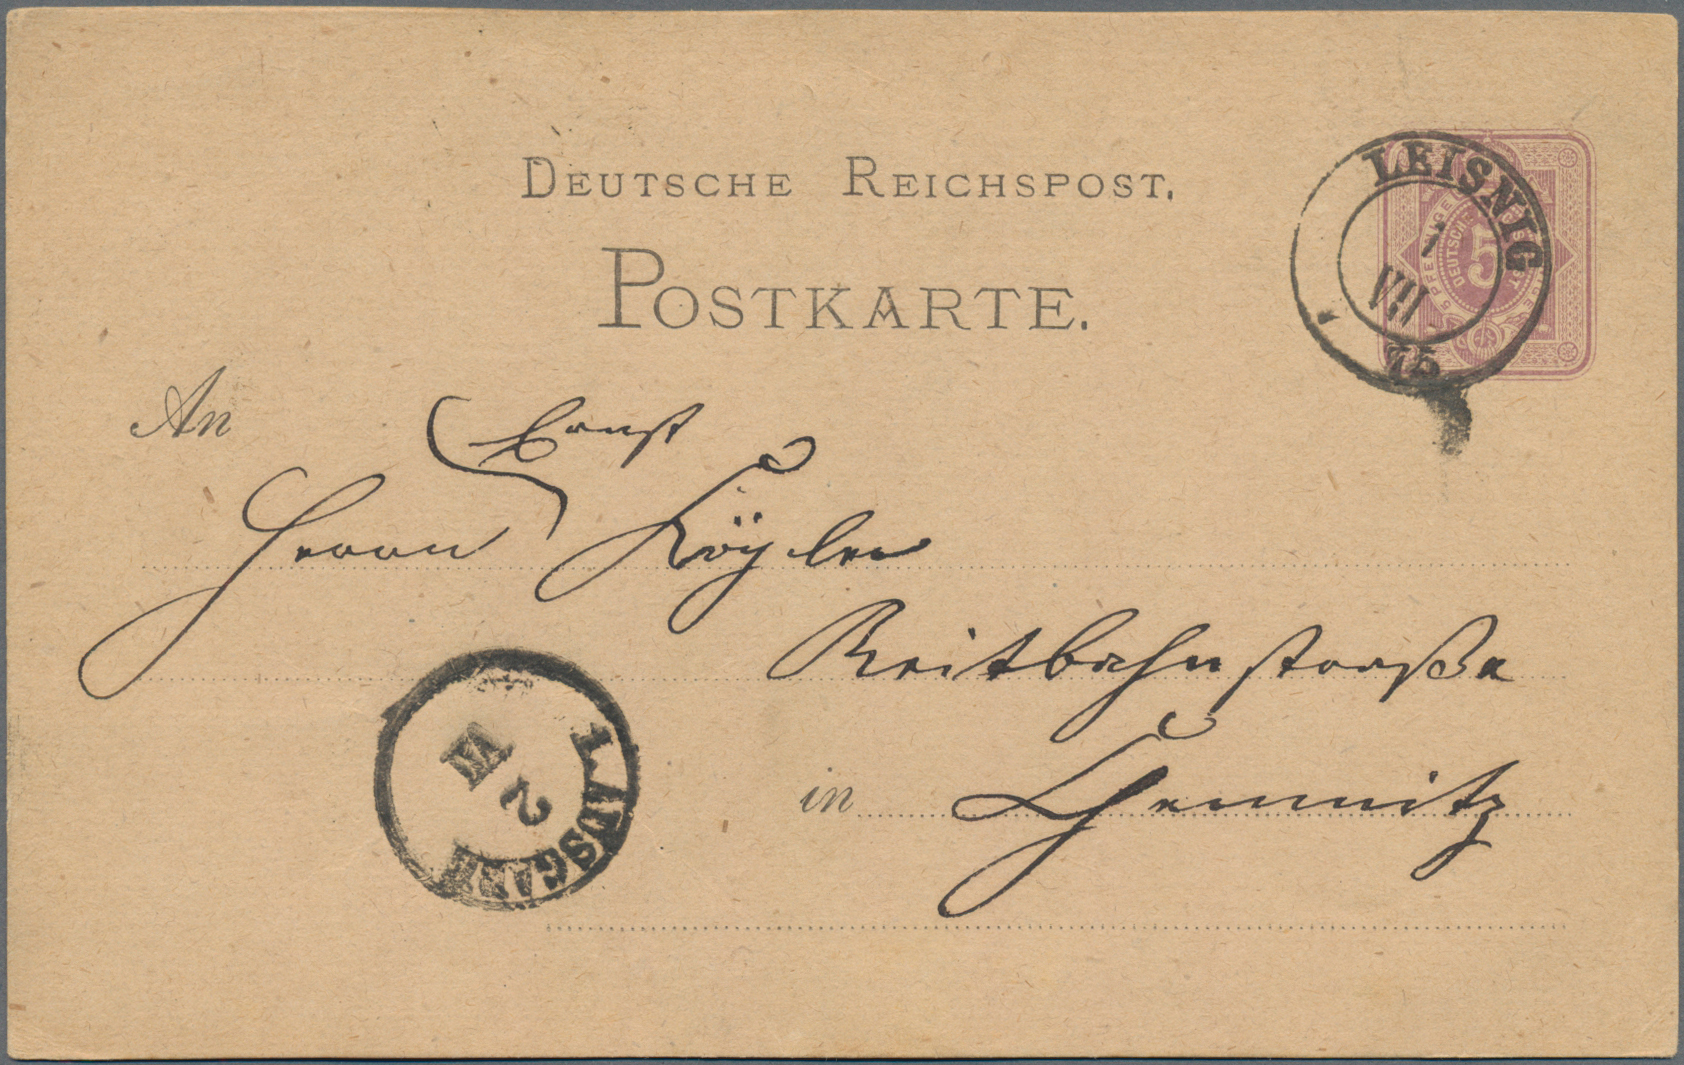 DEUTSCHE REICHSPOST.
POSTKARTE.
LEISNIG
VII
5
DEUTSCHE
5 PFENNIGE
An
Ernst
Herrn
Reitbahnstraße
in Chemnitz
1. AUSGABE
2